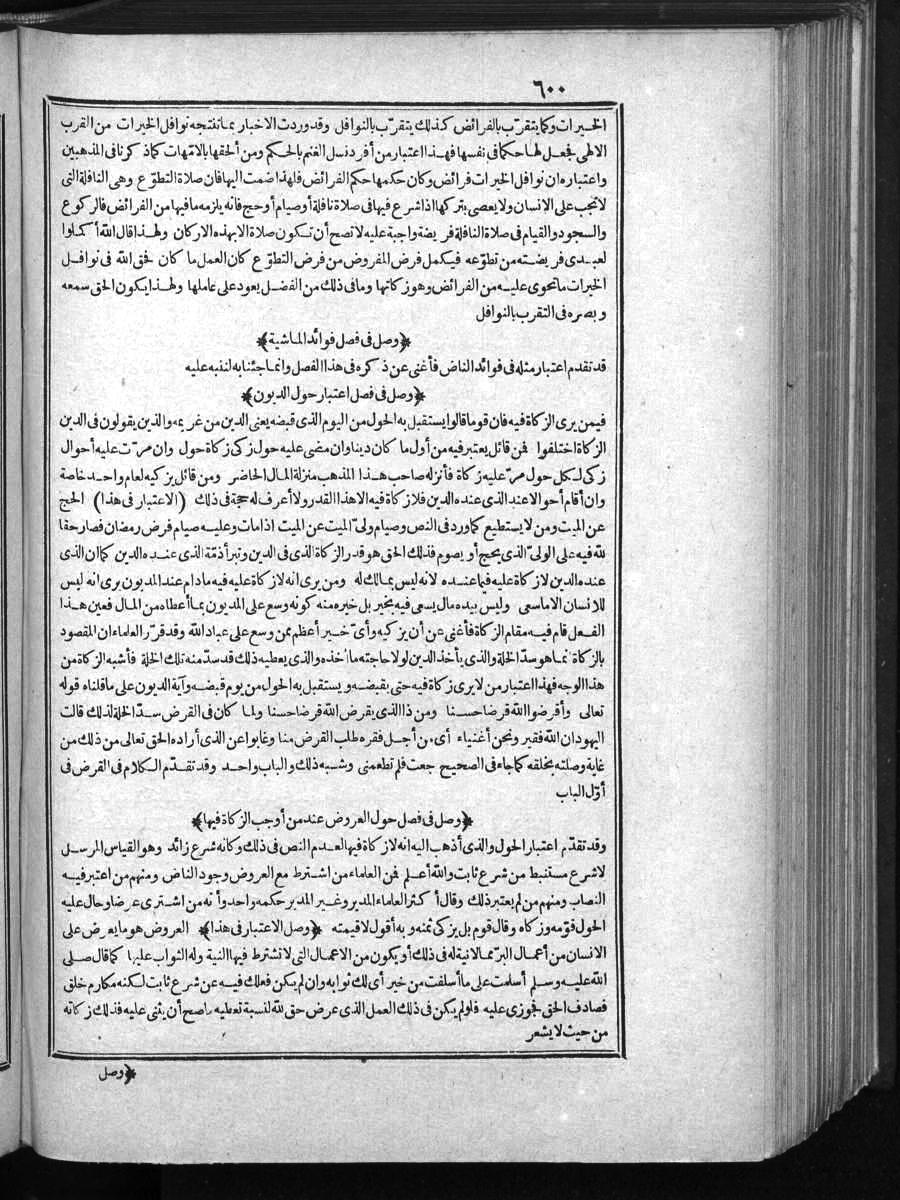 ٦٠٠
الخيرات وكما يتقرّب بالفرائض كذلك يتقرّب بالنوافل وقد وردت الاخبار بما تنتجه نوافل الخيرات من القرب
الالهى فجعل لها حكما فى نفسها فهذا اعتبار من أفرد نسل الغنم بالحكم ومن ألحقها بالامّهات كما ذكرنا فى المذهبين
واعتباره ان نوافل الخيرات فرائض وكان حكمها حكم الفرائض فلهذا ضمت اليها فان صلاة التطوّع وهى النافلة التى
لا تجب على الانسان ولا يعصى بتركها اذا شرع فيها فى صلاة نافلة أو صيام أو حج فانه يلزمه ما فيها من الفرائض فالركوع
والسجود والقيام فى صلاة النافلة فريضة واجبة عليه لا تصح أن تكون صلاة الا بهذه الاركان ولهذا قال الله أكملوا
لعبدى فريضته من تطوّعه فيكمل فرض المفروض من فرض التطوّع كان العمل ما كان فحق الله فى نوافل
الخيرات ما تحوى عليه من الفرائض وهو زكاتها وما فى ذلك من الفضل يعود على عاملها ولهذا يكون الحق سمعه
وبصره فى التقرب بالنوافل
﴿وصل فى فصل فوائد الماشية﴾
قد تقدم اعتبار مثله فى فوائد الناض فأغنى عن ذكره فى هذا الفصل وانما جئنا به لننبه عليه
﴿وصل فى فصل اعتبار حول الديون﴾
فيمن يرى الزكاة فيه فان قوما قالوا يستقبل به الحول من اليوم الذى قبضه يعنى الدين من غريمه والذين يقولون فى الدين
الزكاة اختلفوا فمن قائل يعتبر فيه من أول ما كان دينا وان مضى عليه حول زكى زكاة حول وان مرّت عليه أحوال
زكى لكل حول مرّ عليه زكاة فأنزله صاحب هذا المذهب منزلة المال الحاضر ومن قائل يزكيه لعام واحد خاصة
وان أقام أحوالا عند الذى عنده الدين فلا زكاة فيه الا هذا القدر ولا أعرف له حجة فى ذلك (الاعتبار فى هذا) الحج
عن الميت ومن لا يستطيع كما ورد فى النص وصيام ولىّ الميت عن الميت اذا مات وعليه صيام فرض رمضان فصار حقا
لله فيه على الولىّ الذى يحج أو يصوم فذلك الحق هو قدر الزكاة الذى فى الدين وتبرأ ذمّة الذى عنده الدين كما ان الذى
عنده الدين لا زكاة عليه فيما عنده لانه ليس بمالك له ومن يرى انه لا زكاة عليه فيه مادام عند المديون يرى انه ليس
للانسان الا ما سعى وليس بيده مال يسعى فيه بخير بل خيره منه كونه وسع على المديون بما أعطاه من المال فعين هذا
الفعل قام فيه مقام الزكاة فأغنى عن أن يزكيه وأىّ خير أعظم ممن وسع على عباد الله وقد قرّر العلماء ان المقصود
بالزكاة انما هو سدّ الخلة والذى يأخذ الدين لولا حاجته ما أخذه والذى يعطيه ذلك قد سدّ منه تلك الخلة فأشبه الزكاة من
هذا الوجه فهذا اعتبار من لا يرى زكاة فيه حتى يقبضه ويستقبل به الحول من يوم قبضه وآية الديون على ما قلناه قوله
تعالى وأقرضوا الله قرضا حسنا ومن ذا الذى يقرض الله قرضا حسنا ولما كان فى القرض سدّ الخلة لذلك قالت
اليهود ان الله فقير ونحن أغنياء أى من أجل فقره طلب القرض منا وغابوا عن الذى أراده الحق تعالى من ذلك من
غاية وصلته بخلقه كما جاء فى الصحيح جعت فلم تطعمنى وشبه ذلك والباب واحد وقد تقدّم الكلام فى القرض فى
أوّل الباب
﴿وصل فى فصل حول العروض عند من أوجب الزكاة فيها﴾
وقد تقدّم اعتبار الحول والذى أذهب اليه انه لا زكاة فيها لعدم النص فى ذلك وكانه شرع زائد وهو القياس المرسل
لا شرع مستنبط من شرع ثابت والله أعلم فمن العلماء من اشترط مع العروض وجود الناض ومنهم من اعتبر فيه
النصاب ومنهم من لم يعتبر ذلك وقال أكثر العلماء المدير وغير المدير حكمه واحد وأنه من اشترى عرضا وحال عليه
الحول قوّمه وزكاه وقال قوم بل يزكى ثمنه وبه أقول لا قيمته ﴿وصل الاعتبار فى هذا﴾ العروض هو ما يعرض على
الانسان من أعمال البرّ مما لا نية له فى ذلك أو يكون من الاعمال التى لا تشترط فيها النية وله الثواب عليها كما قال صلى
الله عليه وسلم أسلمت على ما أسلفت من خير أى لك ثوابه وان لم يكن فعلك فيه عن شرع ثابت لكنه مكارم خلق
فصادف الحق فجوزى عليه فلو لم يكن فى ذلك العمل الذى عرض حق لله لنسبة تعطيه ما صح أن يثنى عليه فذلك زكاته
من حيث لا يشعر
﴿وصل